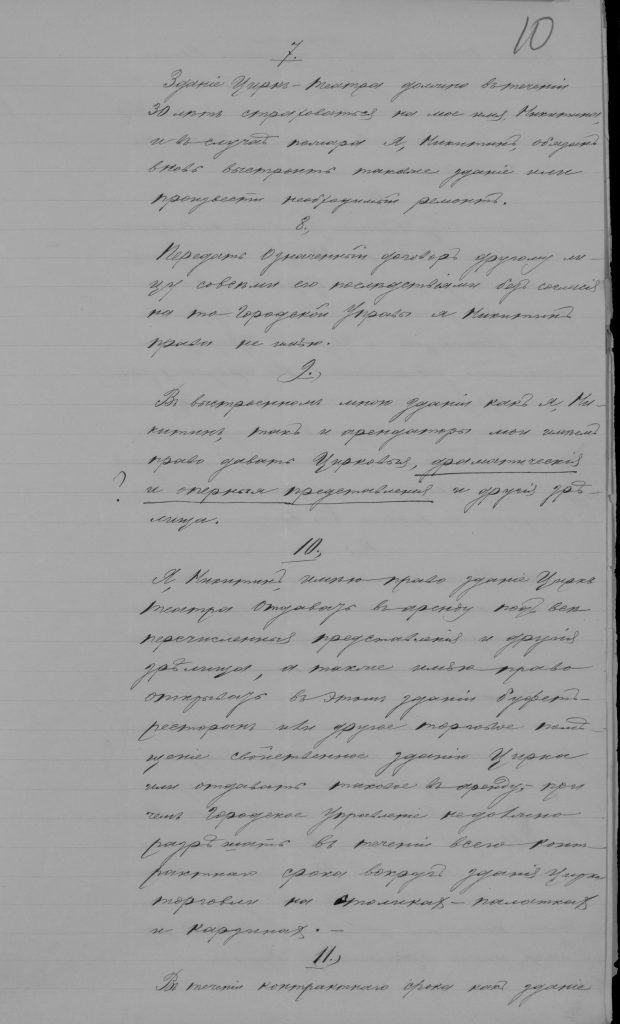 10
7.
Зданіе Циркъ-театра должно въ теченіи
30 лѣтъ страховаться на мое имя, Никитина,
и въ случаѣ пожара я, Никитинъ, обязанъ
вновь выстроить таковое зданіе или
произвести необходимый ремонтъ.
8.,
Передать означенный договоръ другому ли-
цу со всѣми его послѣдствіями безъ согласія
на то Городской Управы я Никитинъ
права не имѣю.
9.,
Въ выстроенномъ мною зданіи какъ я, Ни-
китинъ, такъ и арендаторы мои имѣютъ
право давать Цирковыя, драматическія
?
и оперныя представленія и другія зрѣ-
лища.
10.,
Я, Никитинъ, имѣю право зданіе Циркъ
театра отдавать въ аренду подъ все
перечисленныя представленія и другія
зрѣлища, а также имѣю право
открывать въ этомъ зданіи буфетъ-
ресторанъ или другое торговое помѣ-
щеніе свойственное зданію Цирка
или отдавать таковое въ аренду, при
чемъ Городское Управленіе не должно
разрѣшать въ теченіи всего конт-
рактнаго срока вокругъ зданія Цирка
торговли на столикахъ - палаткахъ
и корзинахъ. -
11.,
Въ теченіи контрактнаго срока какъ зданіе